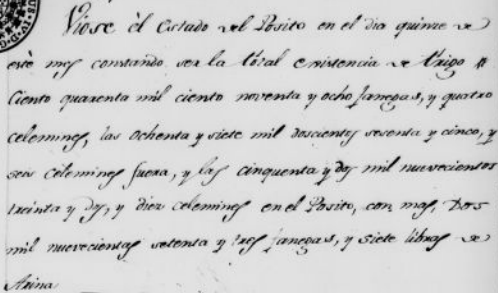 Viose èl Estado del Posito en el dia quinze de
este mes constando ser la total existencia de trigo
Ciento quarenta mil ciento noventa y ocho fanegas, y quatro
celemines, las ochenta y siete mil doscientas sesenta y cinco, y
seis celemines fuera, y las cinquenta y dos mil nuevecientos
treinta y dos, y diez celemines en el Posito, con mas, Dos
mil nuevecientas setenta y tres fanegas, y siete libras de
Arina